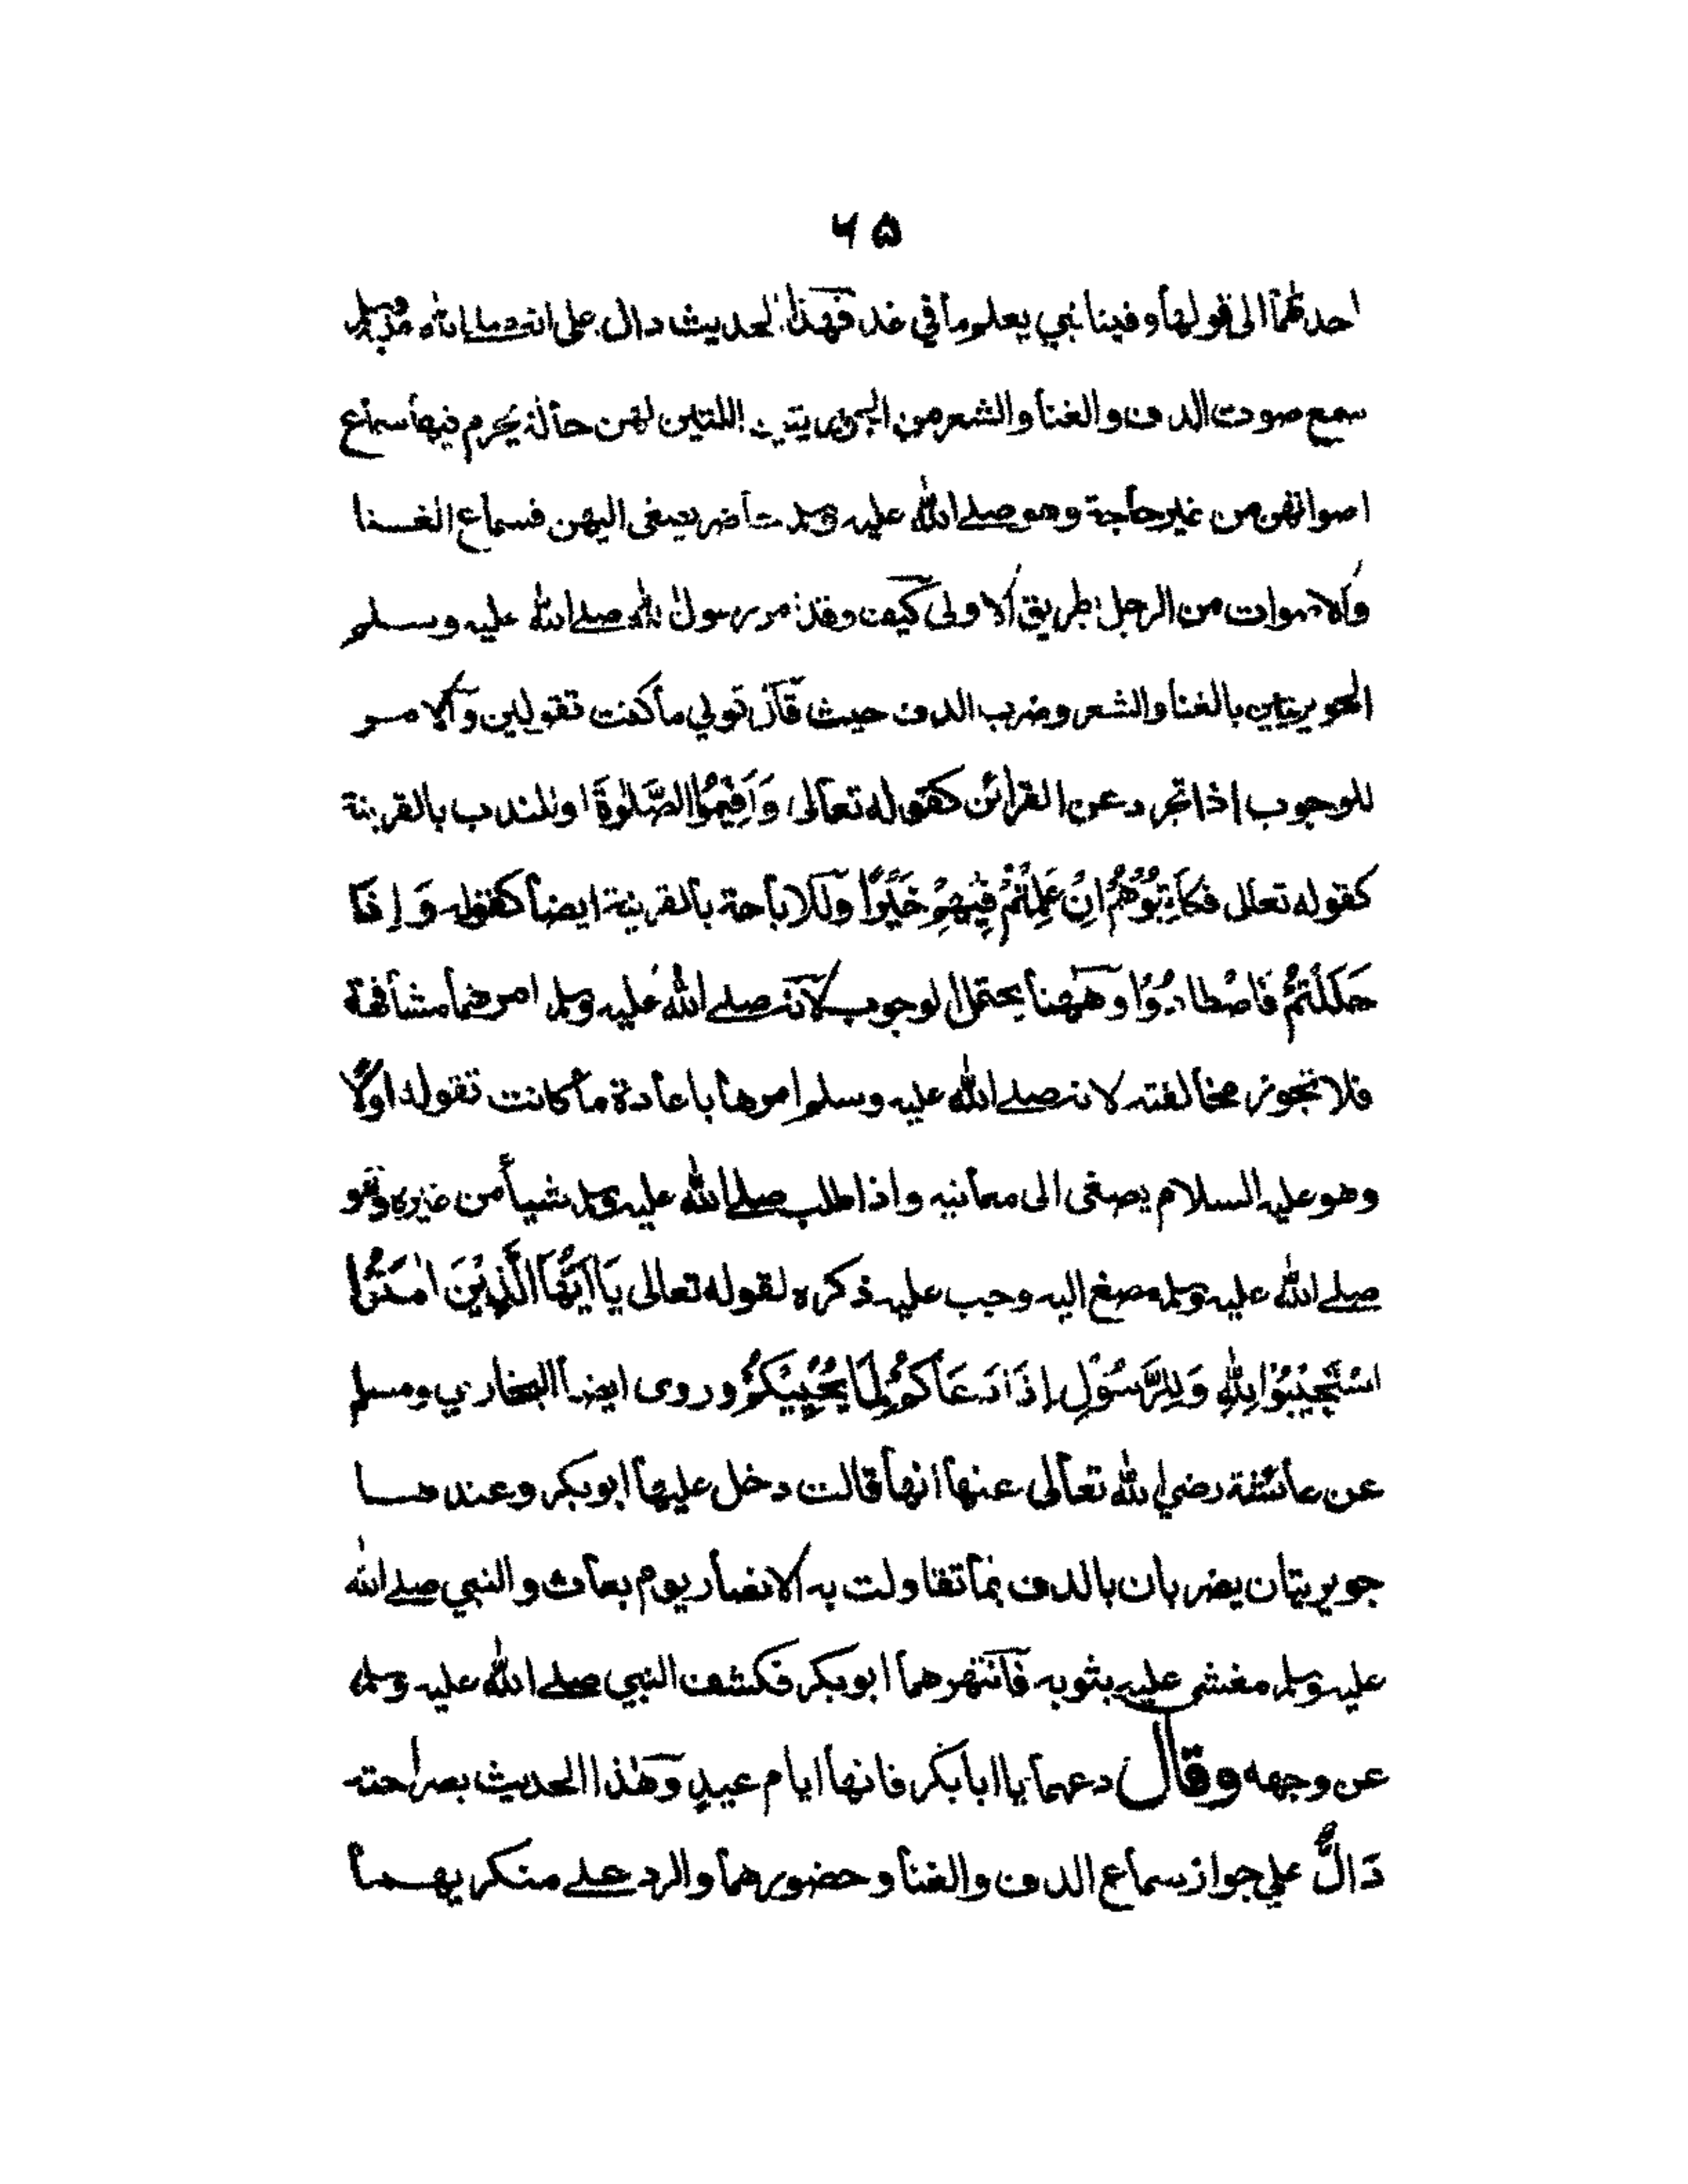 ۶۵
احدٰهما الى قولها وفينا نبي يعلم ما في غد فهذا الحديث دال على انه صلى الله عليه وسلم
سمع صوت الدف والغنا والشعر من الجويريتين اللتين لهن حالة يحرم فيها سماع
اصواتهن من غير حاجة وهو صلے الله عليه وسلم حاضر يصغى اليهن فسماع الغنا
والاصوات من الرجل بطريق الاولى كيف وقد امر رسول الله صلے الله عليه وسلم
الجويريتين بالغنا والشعر وضرب الدف حيث قال قولي ما كنت تقولين والامر
للوجوب اذا تجرد عن القرائن كقوله تعالى وَاَقِيْمُوا الصَّلٰوةَ او للندب بالقرينة
كقوله تعالى فكَاتِبُوْهُمْ اِنْ عَلِمْتُمْ فِيْهِمْ خَيْرًا وللاباحة بالقرينة ايضا كقوله وَاِذَا
حَلَلْتُمْ فَاصْطَادُوْا وههنا يحتمل الوجوب لانه صلے الله عليه وسلم امرهما مشافهة
فلا تجوز مخالفته لانه صلے الله عليه وسلم امرها باعادة ما كانت تقوله اولًا
وهو عليه السلام يصغى الى معانيه واذا طلب صلے الله عليه وسلم شيأ من غيره وهو
صلے الله عليه وسلم مصغ اليه وجب عليه ذكره لقوله تعالى يَا اَيُّهَا الَّذِيْنَ اٰمَنُوا
اسْتَجِيْبُوْا لِلّٰهِ وَلِلرَّسُوْلِ اِذَا دَعَاكُمْ لِمَا يُحْيِيْكُمْ وروى ايضا البخاري ومسلم
عن عائشة رضي الله تعالى عنها انها قالت دخل عليها ابوبكر وعندها
جويريتان يضربان بالدف بما تقاولت به الانصار يوم بعاث والنبي صلے الله
عليه وسلم مغشى عليه بثوبه فانتهرهما ابوبكر فكشف النبي صلے الله عليه وسلم
عن وجهه وقال دعهما يا ابابكر فانها ايام عيدٍ وهٰذا الحديث بصراحته
دَالٌّ علي جواز سماع الدف والغنا وحضورهما والرد علے منكريهما